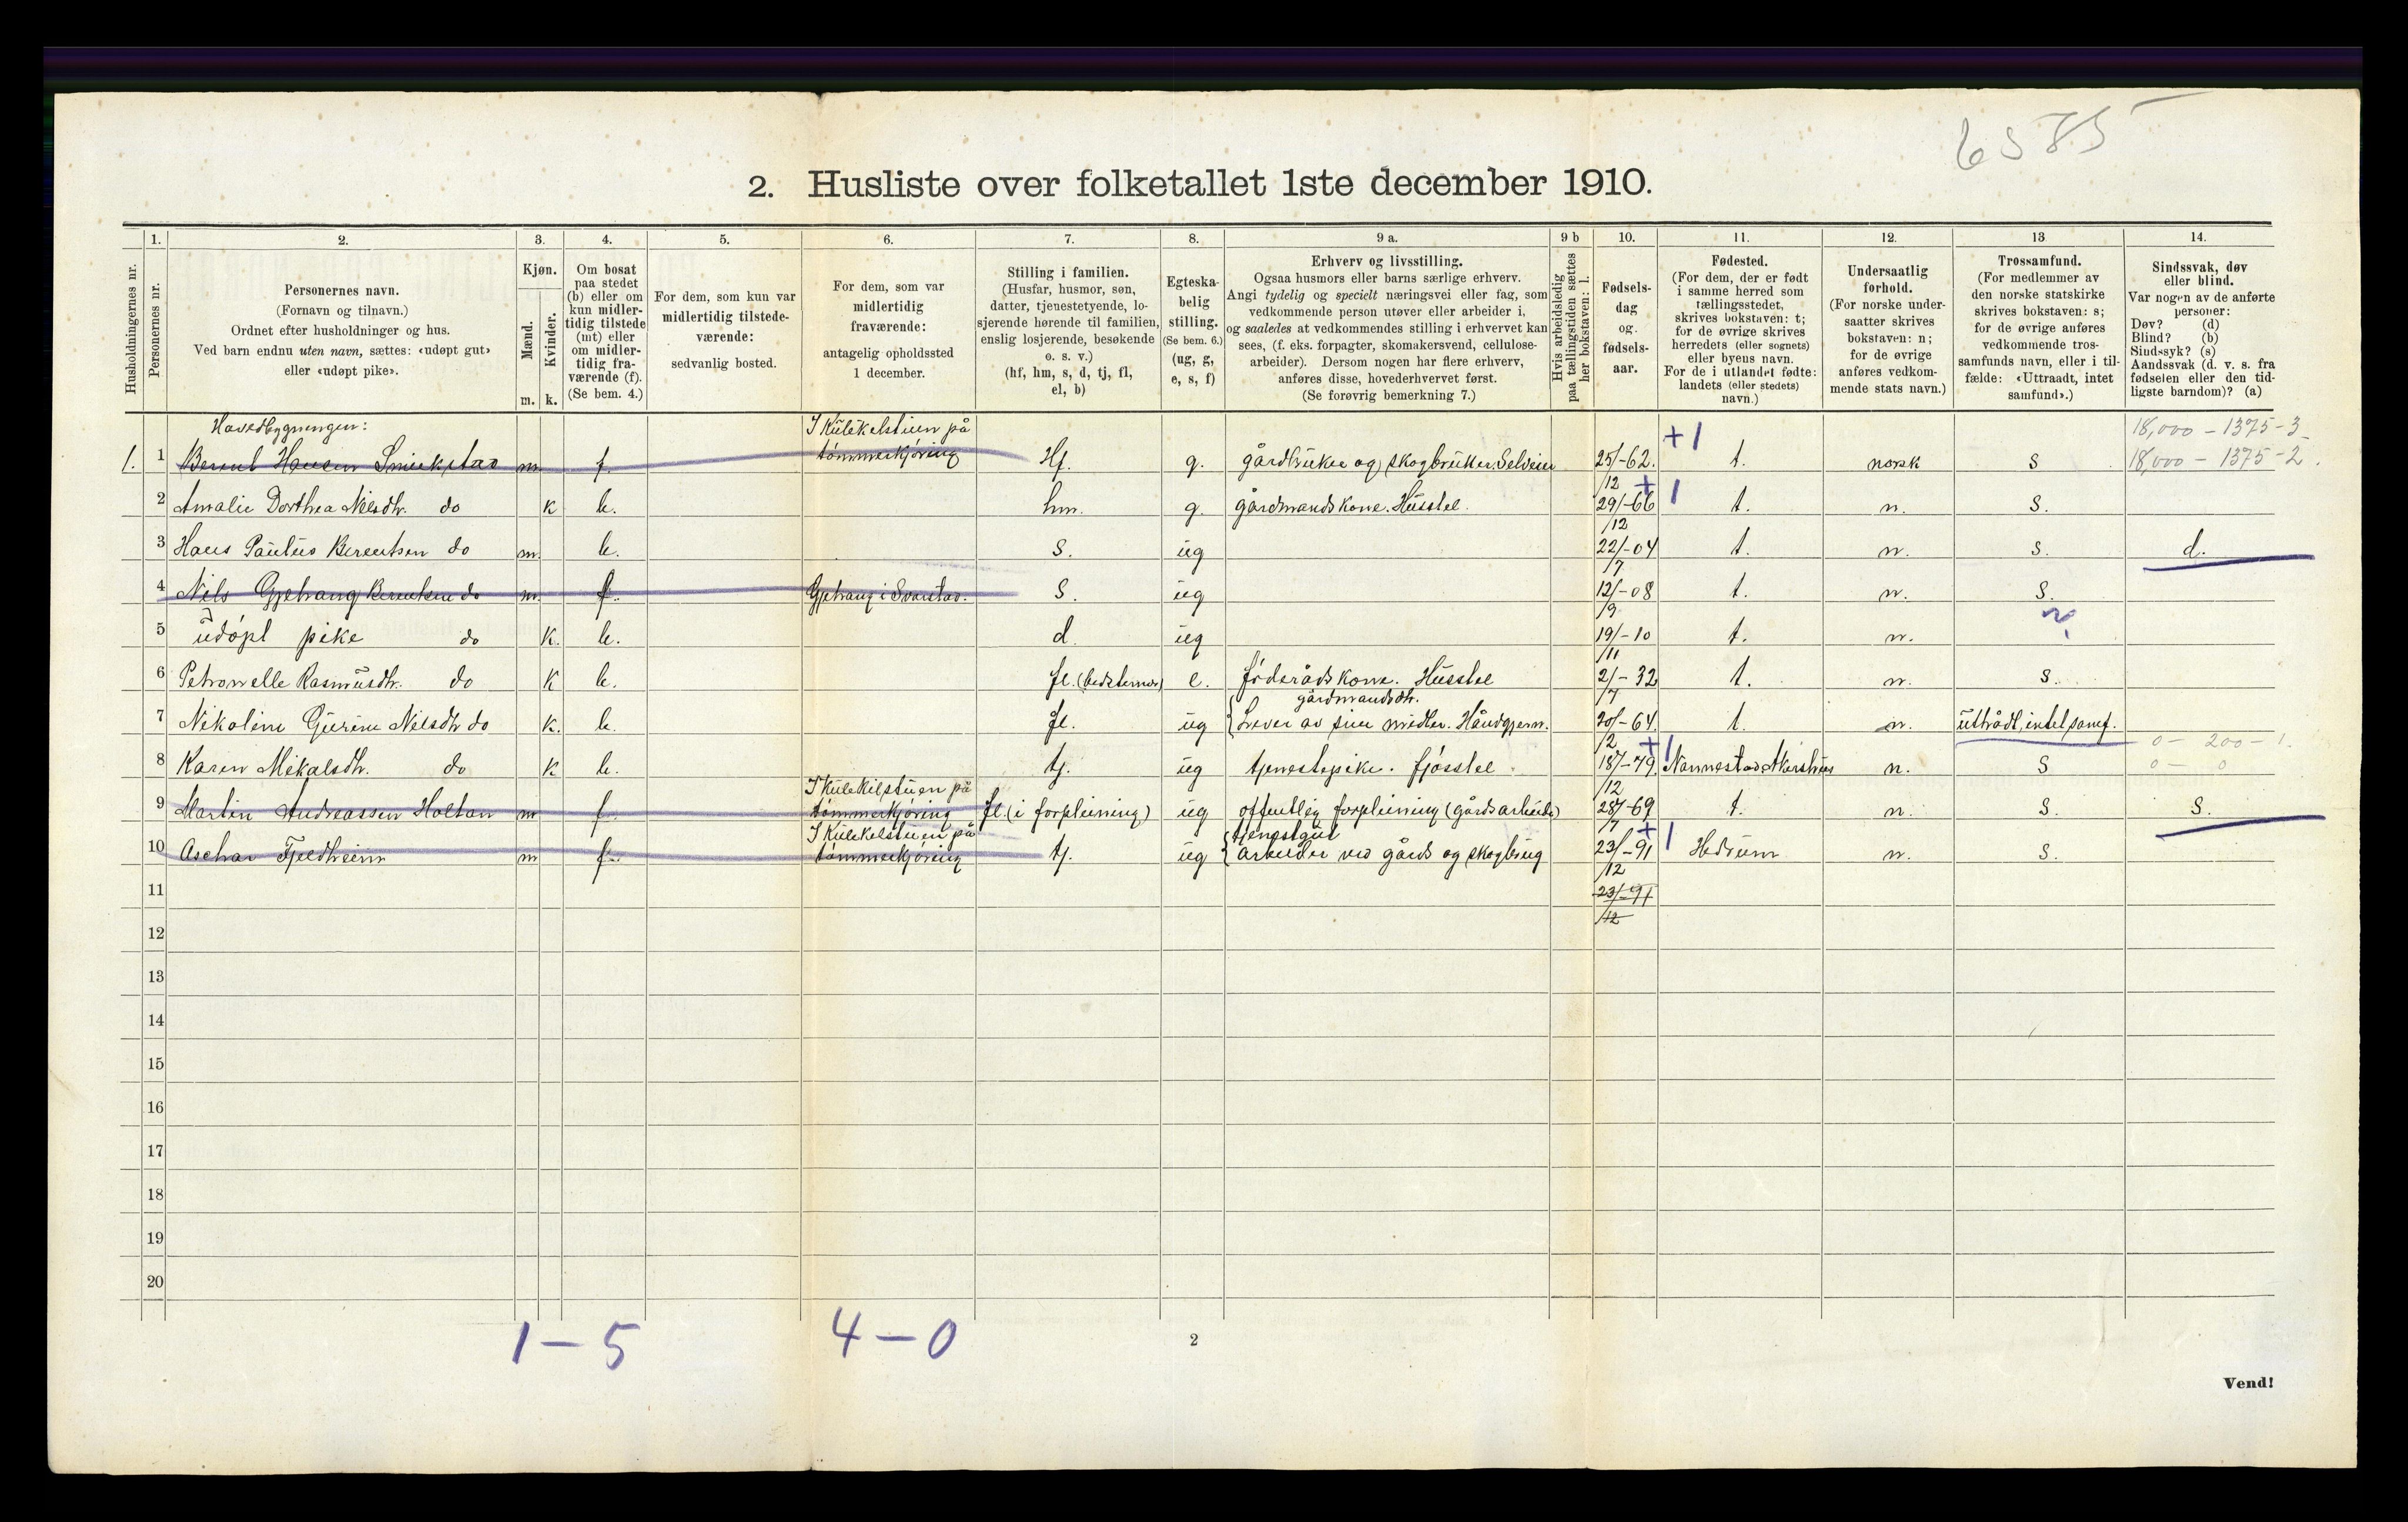 6585
2. Husliste over folketallet 1ste december 1910.
Husholdningernes nr.
1. Personernes nr.
2. Personernes navn.
(Fornavn og tilnavn.)
Ordnet efter husholdninger og hus.
Ved barn endnu uten navn, sættes: «udøpt gut»
eller «udøpt pike».
3. Kjøn.
Mænd. Kvinder.
m. k.
4. Om bosat
paa stedet
(b) eller om
kun midler-
tidig tilstede
(mt) eller
om midler-
tidig fra-
værende (f).
(Se bem. 4.)
5. For dem, som kun var
midlertidig tilstede-
værende:
sedvanlig bosted.
6. For dem, som var
midlertidig
fraværende:
antagelig opholdssted
1 december.
7. Stilling i familien.
(Husfar, husmor, søn,
datter, tjenestetyende, lo-
sjerende hørende til familien,
enslig losjerende, besøkende
o. s. v.)
(hf, hm, s, d, tj, fl,
el, b)
8. Egteska-
belig
stilling.
(Se bem. 6.)
(ug, g,
e, s, f)
9 a. Erhverv og livsstilling.
Ogsaa husmors eller barns særlige erhverv.
Angi tydelig og specielt næringsvei eller fag, som
vedkommende person utøver eller arbeider i,
og saaledes at vedkommendes stilling i erhvervet kan
sees, (f. eks. forpagter, skomakersvend, cellulose-
arbeider). Dersom nogen har flere erhverv,
anføres disse, hovederhvervet først.
(Se forøvrig bemerkning 7.)
9 b Hvis arbeidsledig
paa tællingstiden sættes
her bokstaven: l.
10. Fødsels-
dag
og
fødsels-
aar.
11. Fødested.
(For dem, der er født
i samme herred som
tællingsstedet,
skrives bokstaven: t;
for de øvrige skrives
herredets (eller sognets)
eller byens navn.
For de i utlandet fødte:
landets (eller stedets)
navn.)
12. Undersaatlig
forhold.
(For norske under-
saatter skrives
bokstaven: n;
for de øvrige
anføres vedkom-
mende stats navn.)
13 Trossamfund.
(For medlemmer av
den norske statskirke
skrives bokstaven: s;
for de øvrige anføres
vedkommende tros-
samfunds navn, eller i til-
fælde: «Uttraadt, intet
samfund».)
14. Sindssvak, døv
eller blind.
Var nogen av de anførte
personer:
Døv? (d)
Blind? (b)
Sindssyk? (s)
Aandssvak (d. v. s. fra
fødselen eller den tid-
ligste barndom)? (a)
Hovedbygningen: I Kulekelstuen på +1 18,000 - 1375-3
1. 1 m. f. tømmerkjøring Hf. g. gårdbruker og skogbruker. Selveier 25/12-62. t. norsk s 18,000 - 1375-2.
2 Amalie Dorthea Nilsdtr. do k b. hm. g. gårdmandskone. Husstel. 29/12-66 +1 t. n. s.
3 Hans Paulus Berentsen do m. b. s. ug 22/7-04 t. n. s. d.
4 Nils Gjetrang Berentsen do m. f. Gjetrang i Svarstad. s. ug 12/9-08 t. n. s.
5 udøpt pike do k. b. d. ug 19/11-10 t. n.
6 Petronelle Rasmusdtr. do k b. fl. (bedstemor) e. føderådskone. Husstel 2/7-32 t. n. s.
gårdmandsdtr.
7 Nikoline Gurine Nilsdtr do k. b. fl. ug Lever av sine midler. Håndgjern. 20/2-64. t. n. uttrådt, intet samf.
0 - 200 - 1.
8 Karen Mikalsdtr. do k b. tj. ug tjenestepike. fjøsstel 18/12-79. +1 Nannestad Akershus n. s 0 - 0
I Kulekelstuen på
9 Martin Andreassen Holtan m f. tømmerkjøring fl. (i forpleining) ug offentlig forpleining (gårdsarbeide) 28/7-69 t. n. s. s.
I Kulekelstuen på tjenestgut
10 Aschar Fjeldheim m f. tømmerkjøring tj. ug arbeider ved gårds og skogbrug 23/12-91 +1 Hedrum n. s.
11 23/12-91
12
13
14
15
16
17
18
19
20
1 - 5 4 - 0
2
Vend!